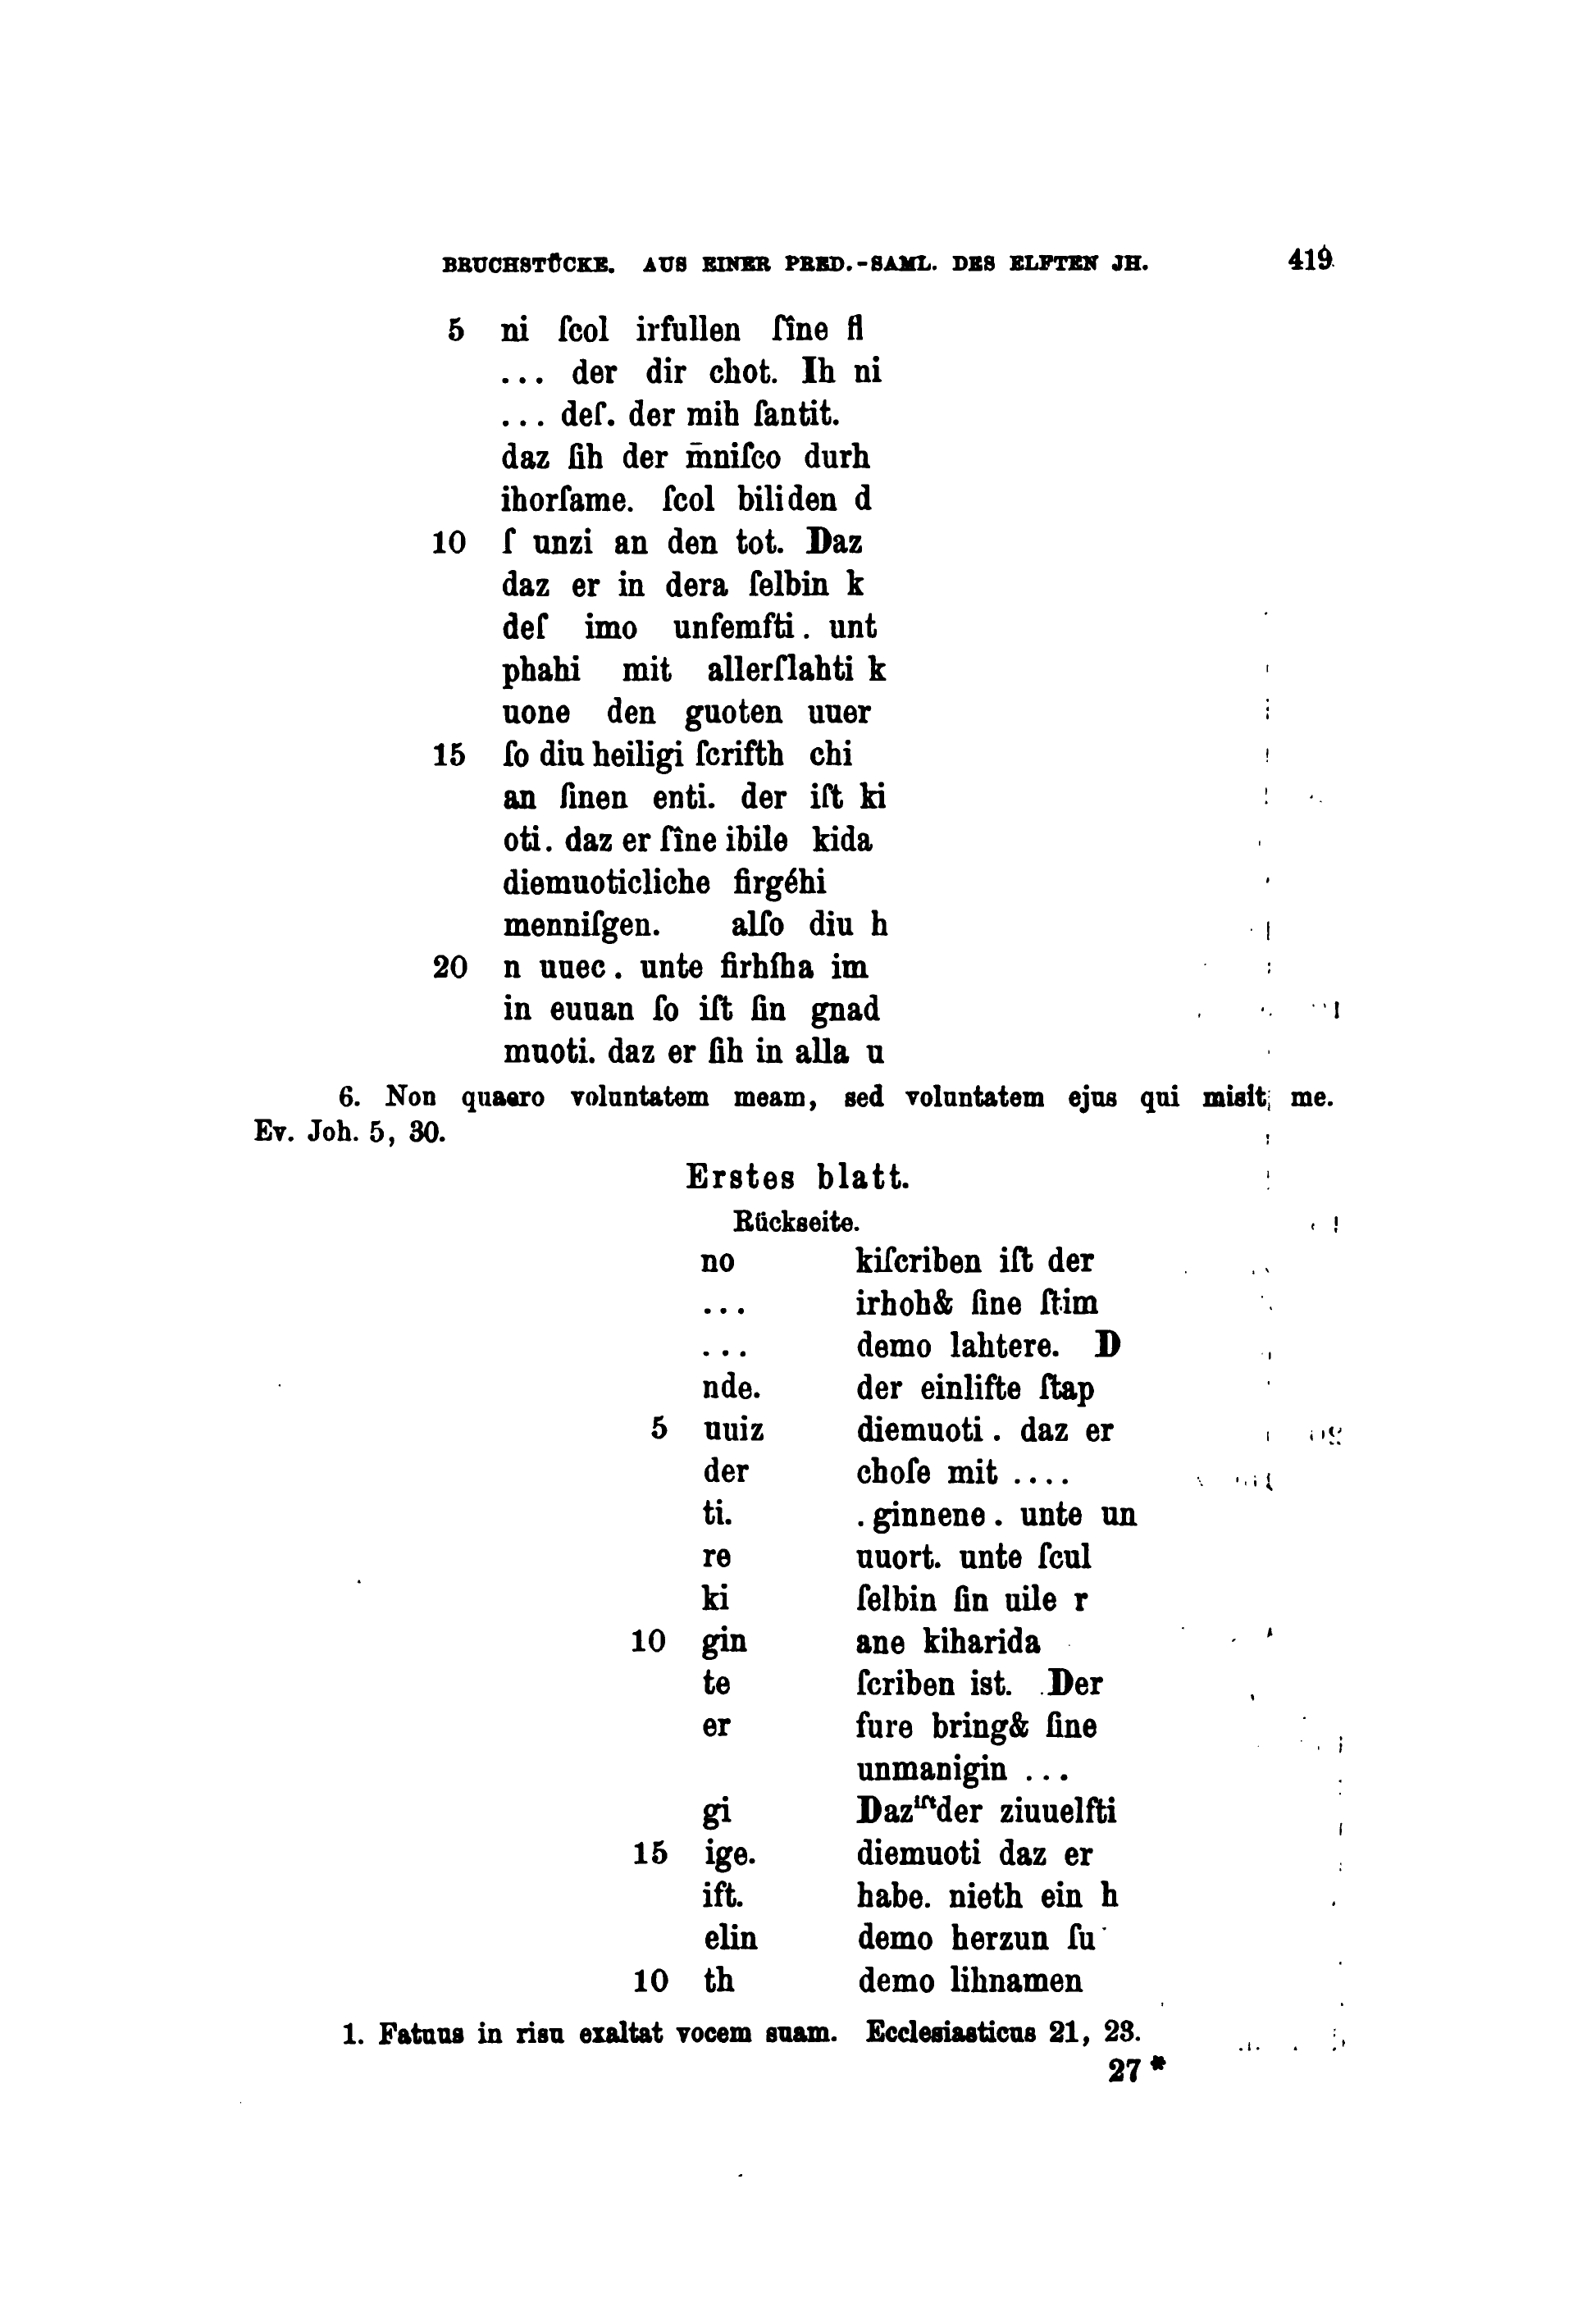 BRUCHSTÜCKE. AUS EINER PRED.-SAML. DES ELFTEN JH. 419
5 ni ſcol irfullen ſîne fl
... der dir chot. Ih ni
... deſ. der mih ſantit.
daz ſih der m̄niſco durh
ihorſame. ſcol biliden d
10 ſ unzi an den tot. Daz
daz er in dera ſelbin k
deſ imo unfemfti. unt
phahi mit allerſlahti k
uone den guoten uuer
15 ſo diu heiligi ſcrifth chi
an ſinen enti. der iſt ki
oti. daz er ſîne ibile kida
diemuoticliche firgéhi
menniſgen. alſo diu h
20 n uuec. unte firhſha im
in euuan ſo iſt ſin gnad
muoti. daz er ſih in alla u
6. Non quaero voluntatem meam, sed voluntatem ejus qui misit me.
Ev. Joh. 5, 30.
Erstes blatt.
Rückseite.
no kiſcriben iſt der
... irhoh& ſine ſtim
... demo lahtere. D
nde. der einlifte ſtap
5 uuiz diemuoti. daz er
der choſe mit ....
ti. .ginnene. unte un
re uuort. unte ſcul
ki ſelbin ſin uile r
10 gin ane kiharida
te ſcriben ist. Der
er fure bring& ſine
unmanigin ...
gi Daz iſt der ziuuelfti
15 ige. diemuoti daz er
ift. habe. nieth ein h
elin demo herzun ſu
10 th demo lihnamen
1. Fatuus in risu exaltat vocem suam. Ecclesiasticus 21, 23.
27*